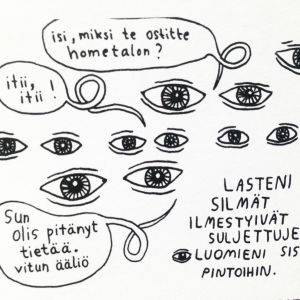 isi, miksi te ostitte
hometalon?
itii,
itii!
Sun
olis pitänyt
tietää.
vitun ääliö
LASTENI
SILMÄT
ILMESTYIVÄT
SULJETTUJE
LUOMIENI SIS
PINTOIHIN.